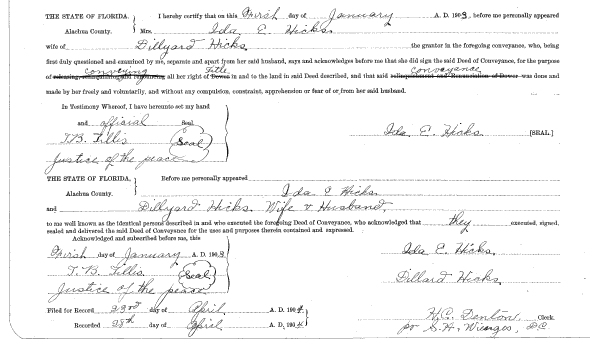 THE STATE OF FLORIDA, I hereby certify that on this First day of January A. D. 1903, before me personally appeared
Alachua County. Mrs. Ida E. Hicks.
wife of Dillyard Hicks. the grantor in the foregoing conveyance, who, being
first duly questioned and examined by me, separate and apart from her said husband, says and acknowledges before me that she did sign the said Deed of Conveyance, for the purpose
conveying Title conveyance
of releasing, relinquishing and renouncing all her right of Dower in and to the land in said Deed described, and that said relinquishment and Renunciation of Dower was done and
made by her freely and voluntarily, and without any compulsion, constraint, apprehension or fear of or from her said husband.
In Testimony Whereof, I have hereunto set my hand
and official Seal
T.B. Tillis Seal Ida E. Hicks. [SEAL.]
Justice of the peace
THE STATE OF FLORIDA, Before me personally appeared
Alachua County. Ida E Hicks.
and Dillyard Hicks, Wife & Husband,
to me well known as the identical persons described in and who executed the foregoing Deed of Conveyance, who acknowledged that they executed, signed,
sealed and delivered the said Deed of Conveyance for the uses and purposes therein contained and expressed.
Acknowledged and subscribed before me, this
First day of January A. D. 1903 Ida E. Hicks.
T. B. Tillis Seal Dillard Hicks.
Justice of the peace
Filed for Record 23rd day of April A. D. 1904 H.C. Denton, Clerk.
Recorded 28th day of April A. D. 1904 pr S.H. Wienges, D.C.